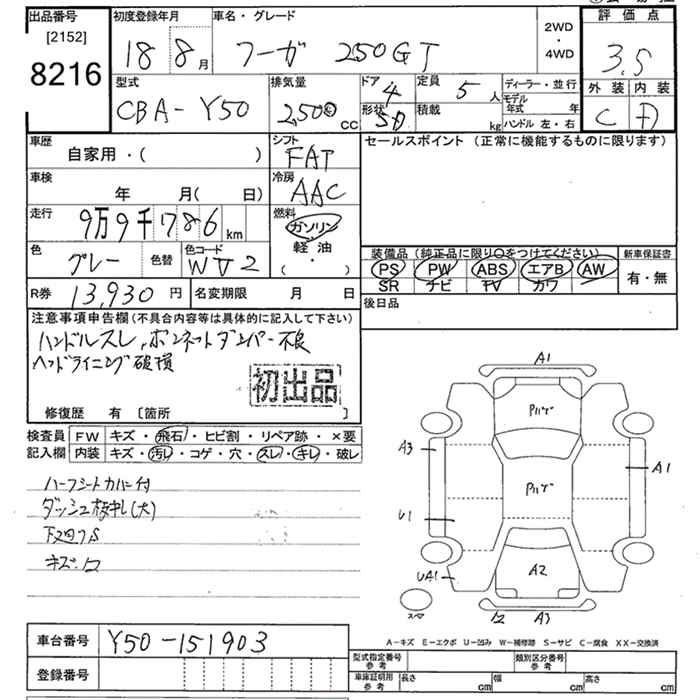 出品番号
[2152]
8216
初度登録年月
18 8月
車名・グレード
フーガ 250GT
2WD
・
4WD
評価点
3.5
外装 内装
C
型式
CBA-Y50
排気量
2,500 CC
ドア
4
形状
SD
定員
5人
積載
kg
ディーラー・並行
モデル年式 年
ハンドル 左・右
車歴
自家用・( )
シフト
FAT
車検
年 月( 日)
冷房
AAC
走行
9万9千786km
燃料
ガソリン
軽油
( ・ )
色
グレー
色替
色コード
WV2
R券 13,930円
名変期限 月 日
セールスポイント (正常に機能するものに限ります)
装備品 (純正品に限り○をつけてください)
PS PW ABS エアB AW
SR ナビ TV カワ
新車保証書
有・無
後日品
注意事項申告欄(不具合内容等は具体的に記入して下さい)
ハンドルスレ、ボンネットダンパー不良
ヘッドライニング破損
初出品
修復歴 有 [箇所
検査員記入欄
FW キズ・飛石・ヒビ割・リペア跡・×要
内装 キズ・汚レ・コゲ・穴・スレ・キレ・破レ
ハーフシートカバー付
ダッシュ板キレ(大)
下廻りS
キズ・凹
A1
A3
A1
U1
UA1
A2
A3
スペア
A-キズ E-エクボ U-凹み W-補修跡 S-サビ C-腐食 XX-交換済
車台番号 Y50-151903
登録番号
型式指定番号 参考
類別区分番号 参考
車庫証明用 参考
長さ cm 幅 cm 高さ cm